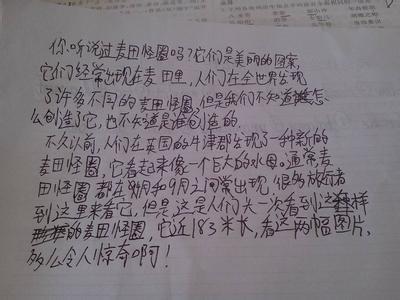 你听说过麦田怪圈吗?它们是美丽的图案,
它们经常出现在麦田里,人们在全世界发现
了许多不同的麦田怪圈,但是我们不知道怎
么创造了它,也不知道是谁创造的。
不久以前,人们在英国的牛津郡发现了一种新的
麦田怪圈,它看起来像一个巨大的水母。通常麦
田怪圈都在8月和9月之间常出现,很多旅行者
到这里来看它,但是这是人们头一次看到这样
的麦田怪圈,它近183米长,看这两幅图片,
多么令人惊奇啊!